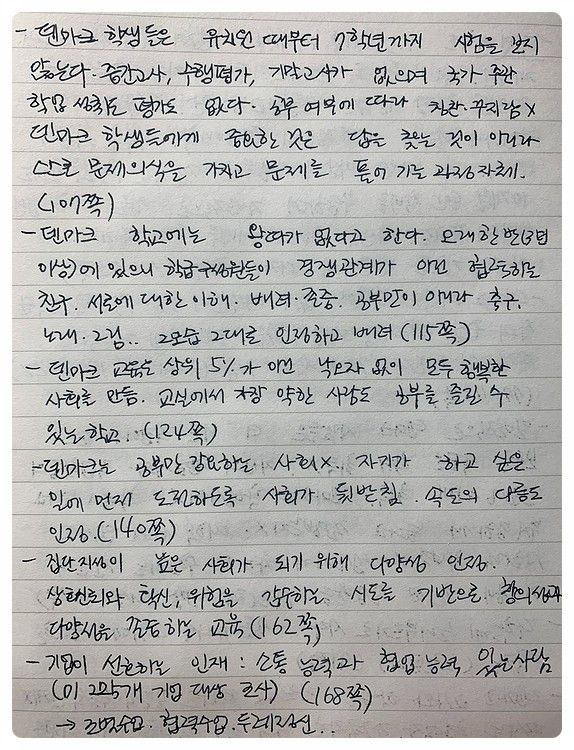 - 덴마크 학생들은 유치원 때부터 7학년까지 시험을 보지
않는다. 중간고사, 수행평가, 기말고사가 없으며 국가 주관
학업 성취도 평가도 없다. 공부 여부에 따라 칭찬·꾸지람 X
덴마크 학생들에게 중요한 것은 답을 찾는 것이 아니라
스스로 문제의식을 가지고 문제를 풀어 가는 과정 자체.
(107쪽)
- 덴마크 학교에는 왕따가 없다고 한다. 오래 한 반(3년
이상)에 있으니 학급구성원들이 경쟁관계가 아닌 협조하는
친구. 서로에 대한 이해. 배려·존중. 공부만이 아니라 축구,
노래·그림.. 그 모습 그대로 인정하고 배려 (115쪽)
- 덴마크 교육은 상위 5%가 아닌 낙오자 없이 모두 행복한
사회를 만듦. 교실에서 가장 약한 사람도 공부를 즐길 수
있는 학교. (124쪽)
- 덴마크는 공부만 강요하는 사회 X. 자기가 하고 싶은
일에 먼저 도전하도록 사회가 뒷받침. 속도의 다름도
인정. (140쪽)
- 집단지성이 높은 사회가 되기 위해 다양성 인정.
상호신뢰와 혁신, 위험을 감수하는 시도를 기반으로 창의성과
다양성을 존중하는 교육 (162쪽)
- 기업이 선호하는 인재 : 소통 능력과 협업 능력 있는 사람
(미 기업 대상 조사) (168쪽)
→ 조별수업. 협력수업. 두레정신..